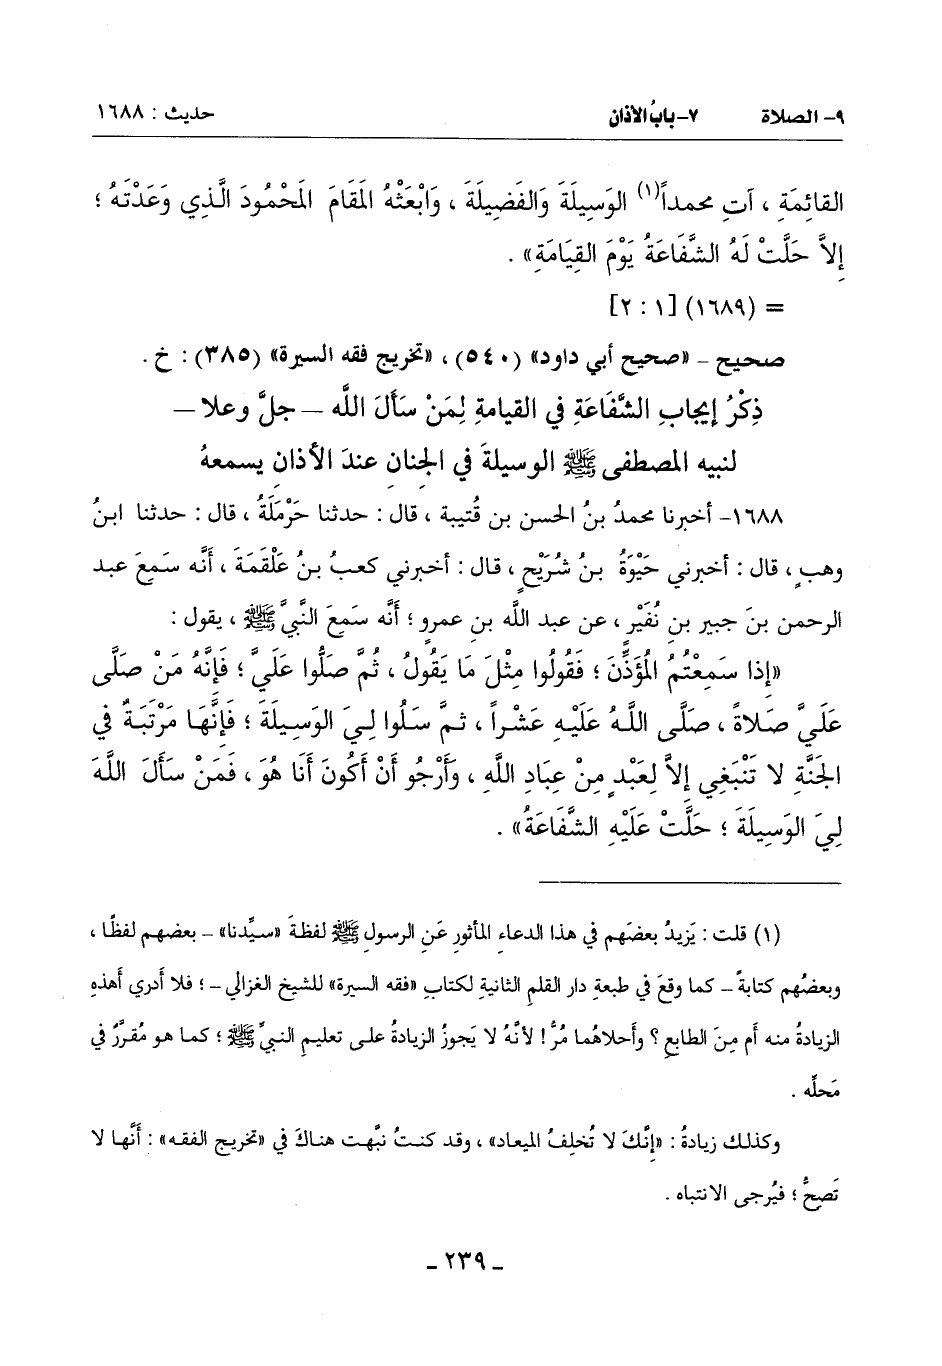 ٩- الصلاة ٧- بابُ الأذان حديث : ١٦٨٨
القائِمَةِ ، آتِ محمداً(١) الوَسِيلَةَ وَالفَضِيلَةَ ، وَابْعَثْهُ المَقَامَ المَحْمُودَ الَّذِي وَعَدْتَهُ ؛
إِلاَّ حَلَّتْ لَهُ الشَّفَاعَةُ يَوْمَ القِيَامَةِ» .
= (١٦٨٩) [١ : ٢]
صحيح – «صحيح أبي داود» (٥٤٠) ، «تخريج فقه السيرة» (٣٨٥) : خ .
ذِكْرُ إيجابِ الشَّفَاعَةِ في القيامةِ لِمَنْ سَأَلَ اللَّه – جلَّ وعلا –
لنبيه المصطفى ﷺ الوسيلةَ في الجنان عندَ الأذان يسمعهُ
١٦٨٨- أخبرنا محمدُ بنُ الحسن بن قُتيبة ، قال : حدثنا حَرْمَلَةُ ، قال : حدثنا ابنُ
وهبٍ ، قال : أخبرني حَيْوَةُ بنُ شُرَيْحٍ ، قال : أخبرني كعبُ بنُ عَلْقَمَةَ ، أنَّه سَمِعَ عبد
الرحمن بنَ جبير بنِ نُفَيْرٍ ، عن عبد اللَّه بنِ عمرٍو ؛ أنَّه سَمِعَ النَّبيَّ ﷺ ، يقول :
«إذا سَمِعْتُمُ المُؤَذِّنَ ؛ فَقُولُوا مِثْلَ مَا يَقُولُ ، ثُمَّ صَلُّوا عَلَيَّ ؛ فَإِنَّهُ مَنْ صَلَّى
عَلَيَّ صَلاةً ، صَلَّى اللَّهُ عَلَيْهِ عَشْراً ، ثمَّ سَلُوا لِيَ الوَسِيلَةَ ؛ فَإِنَّهَا مَرْتَبَةٌ في
الجَنَّةِ لا تَنْبَغِي إِلاَّ لِعَبْدٍ مِنْ عِبَادِ اللَّهِ ، وَأَرْجُو أَنْ أَكُونَ أَنَا هُوَ ، فَمَنْ سَأَلَ اللَّهَ
لِيَ الوَسِيلَةَ ؛ حَلَّتْ عَلَيْهِ الشَّفَاعَةُ» .
(١) قلت : يَزيدُ بعضَهم في هذا الدعاءِ المأثورِ عَنِ الرسولِ ﷺ لفظةَ «سيِّدنا» – بعضهم لفظًا ،
وبعضُهم كتابةً – كما وقعَ في طبعةِ دار القلمِ الثانيةِ لكتابِ «فقه السيرة» للشيخ الغزالي – ؛ فلا أدري أهذهِ
الزيادةُ منه أم مِنَ الطابعِ ؟ وأحلاهُما مُرُّ ! لأنَّهُ لا يَجوزُ الزيادةُ على تعليمِ النبيِّ ﷺ ؛ كما هو مُقرَّرٌ في
مَحلِّه .
وكذلك زيادةُ : «إنَّكَ لا تُخلِفُ الميعاد» ، وقد كنتُ نبَّهت هناكَ في «تخريج الفقه» : أنَّها لا
تَصحُّ ؛ فيُرجى الانتباه .
– ٢٣٩ –